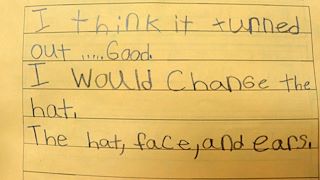 I think it turned
out .....Good.
I Would Change the
hat.
The hat, face, and ears.